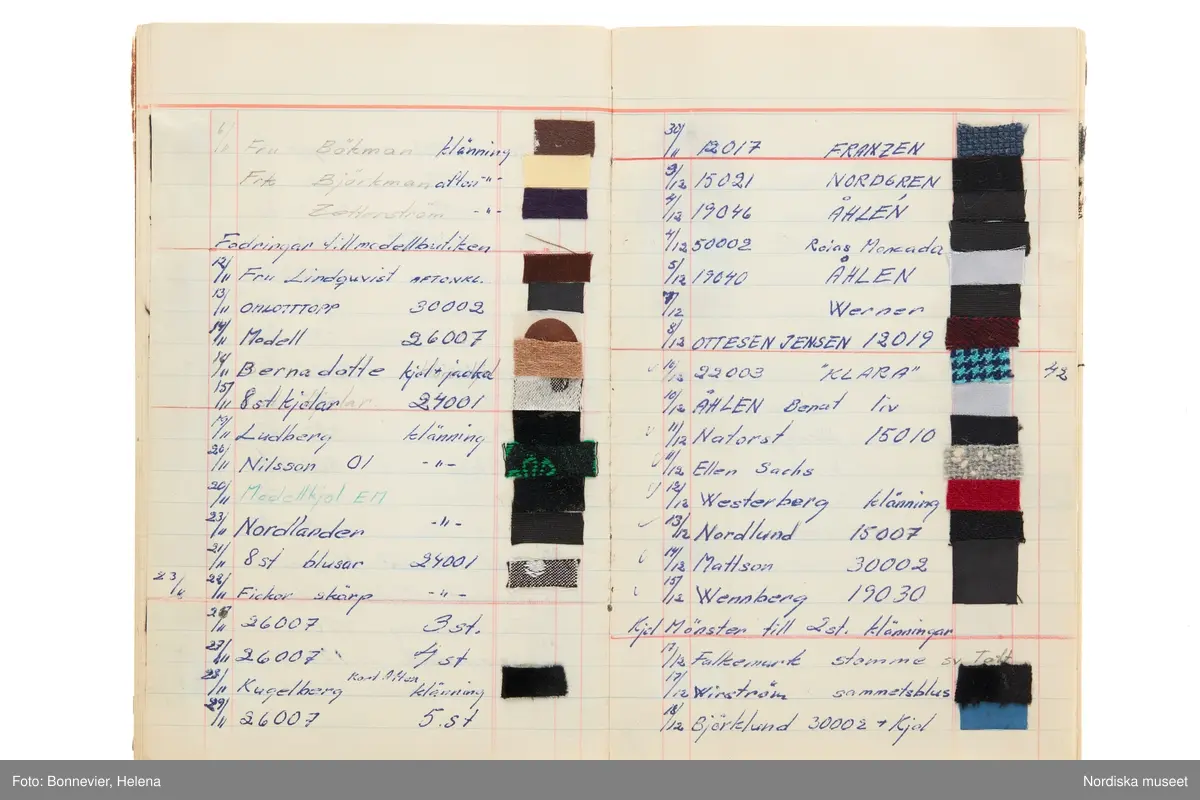 6/11 Fru Bökman klänning
Frk Björkman afton -"-
Zetterström -"-
Fodringar till modellbutiken
12/11 Fru Lindqvist AFTONKL.
13/11 30002
14/11 Modell 26007
14/11 Bernadotte kjol + jacka
15/11 8 st kjolar 24001
19/11 Ludberg klänning
20/11 Nilsson Ol -"-
20/11 Modellkjol EM
23/11 Nordlander -"-
21/11 8 st blusar 24001
23/11 22/11 Fickor skärp -"-
26007 3 st.
27/11 26007 4 st
Kort Afton
28/11 Kugelberg klänning
29/11 26007 5.st
30/11 12017 FRANZEN
3/12 15021 NORDGREN
4/12 19046 ÅHLÉN
4/12 50002 Rojas Moncada
5/12 19040 ÅHLEN
7/12 Werner
8/12 OTTESEN JENSEN 12019
10/12 22003 "KLARA" 42
10/12 ÅHLEN Benat liv
11/12 Natorst 15010
11/12 Ellen Sachs
12/12 Westerberg klänning
13/12 Nordlund 15007
14/12 Mattson 30002
15/12 Wennberg 19030
Kjol Mönster till 2 st. klänningar
17/12 Falkemark stomme sv. Taft
17/12 Wirström sammetsblus
18/12 Björklund 30002 + Kjol
Foto: Bonnevier, Helena
Nordiska museet